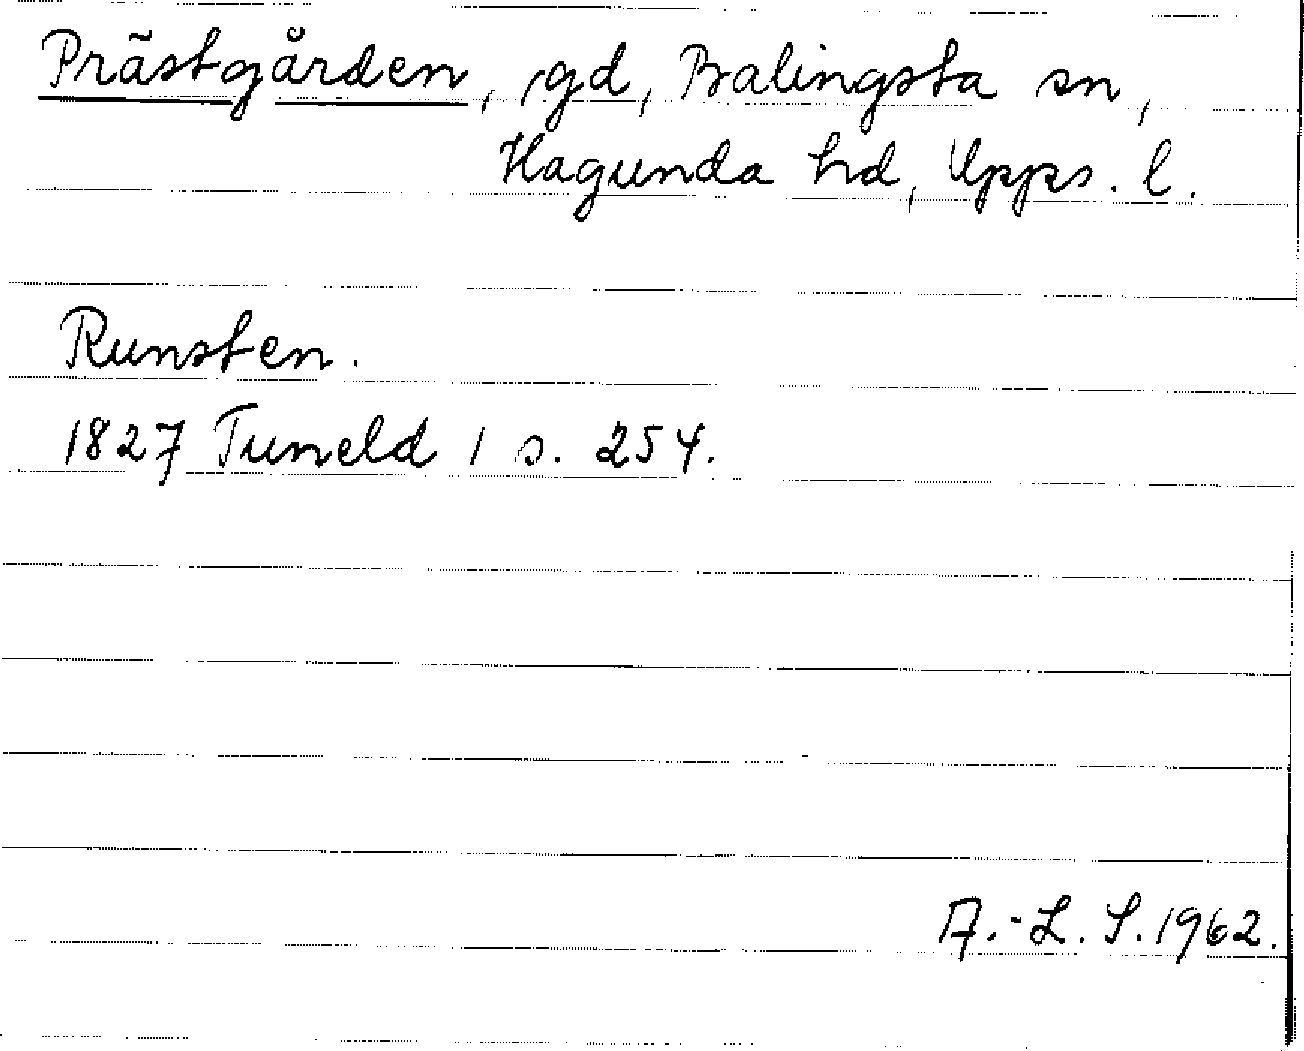 Prästgården, gd, Balingsta sn,
Hagunda hd, Upps. l.
Runsten.
1827 Tuneld 1 s. 254.
A.-L. S. 1962.